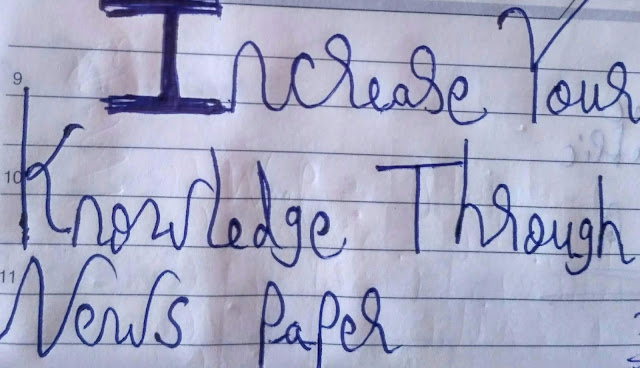 9
Increase Your
10
Knowledge Through
11
News Paper